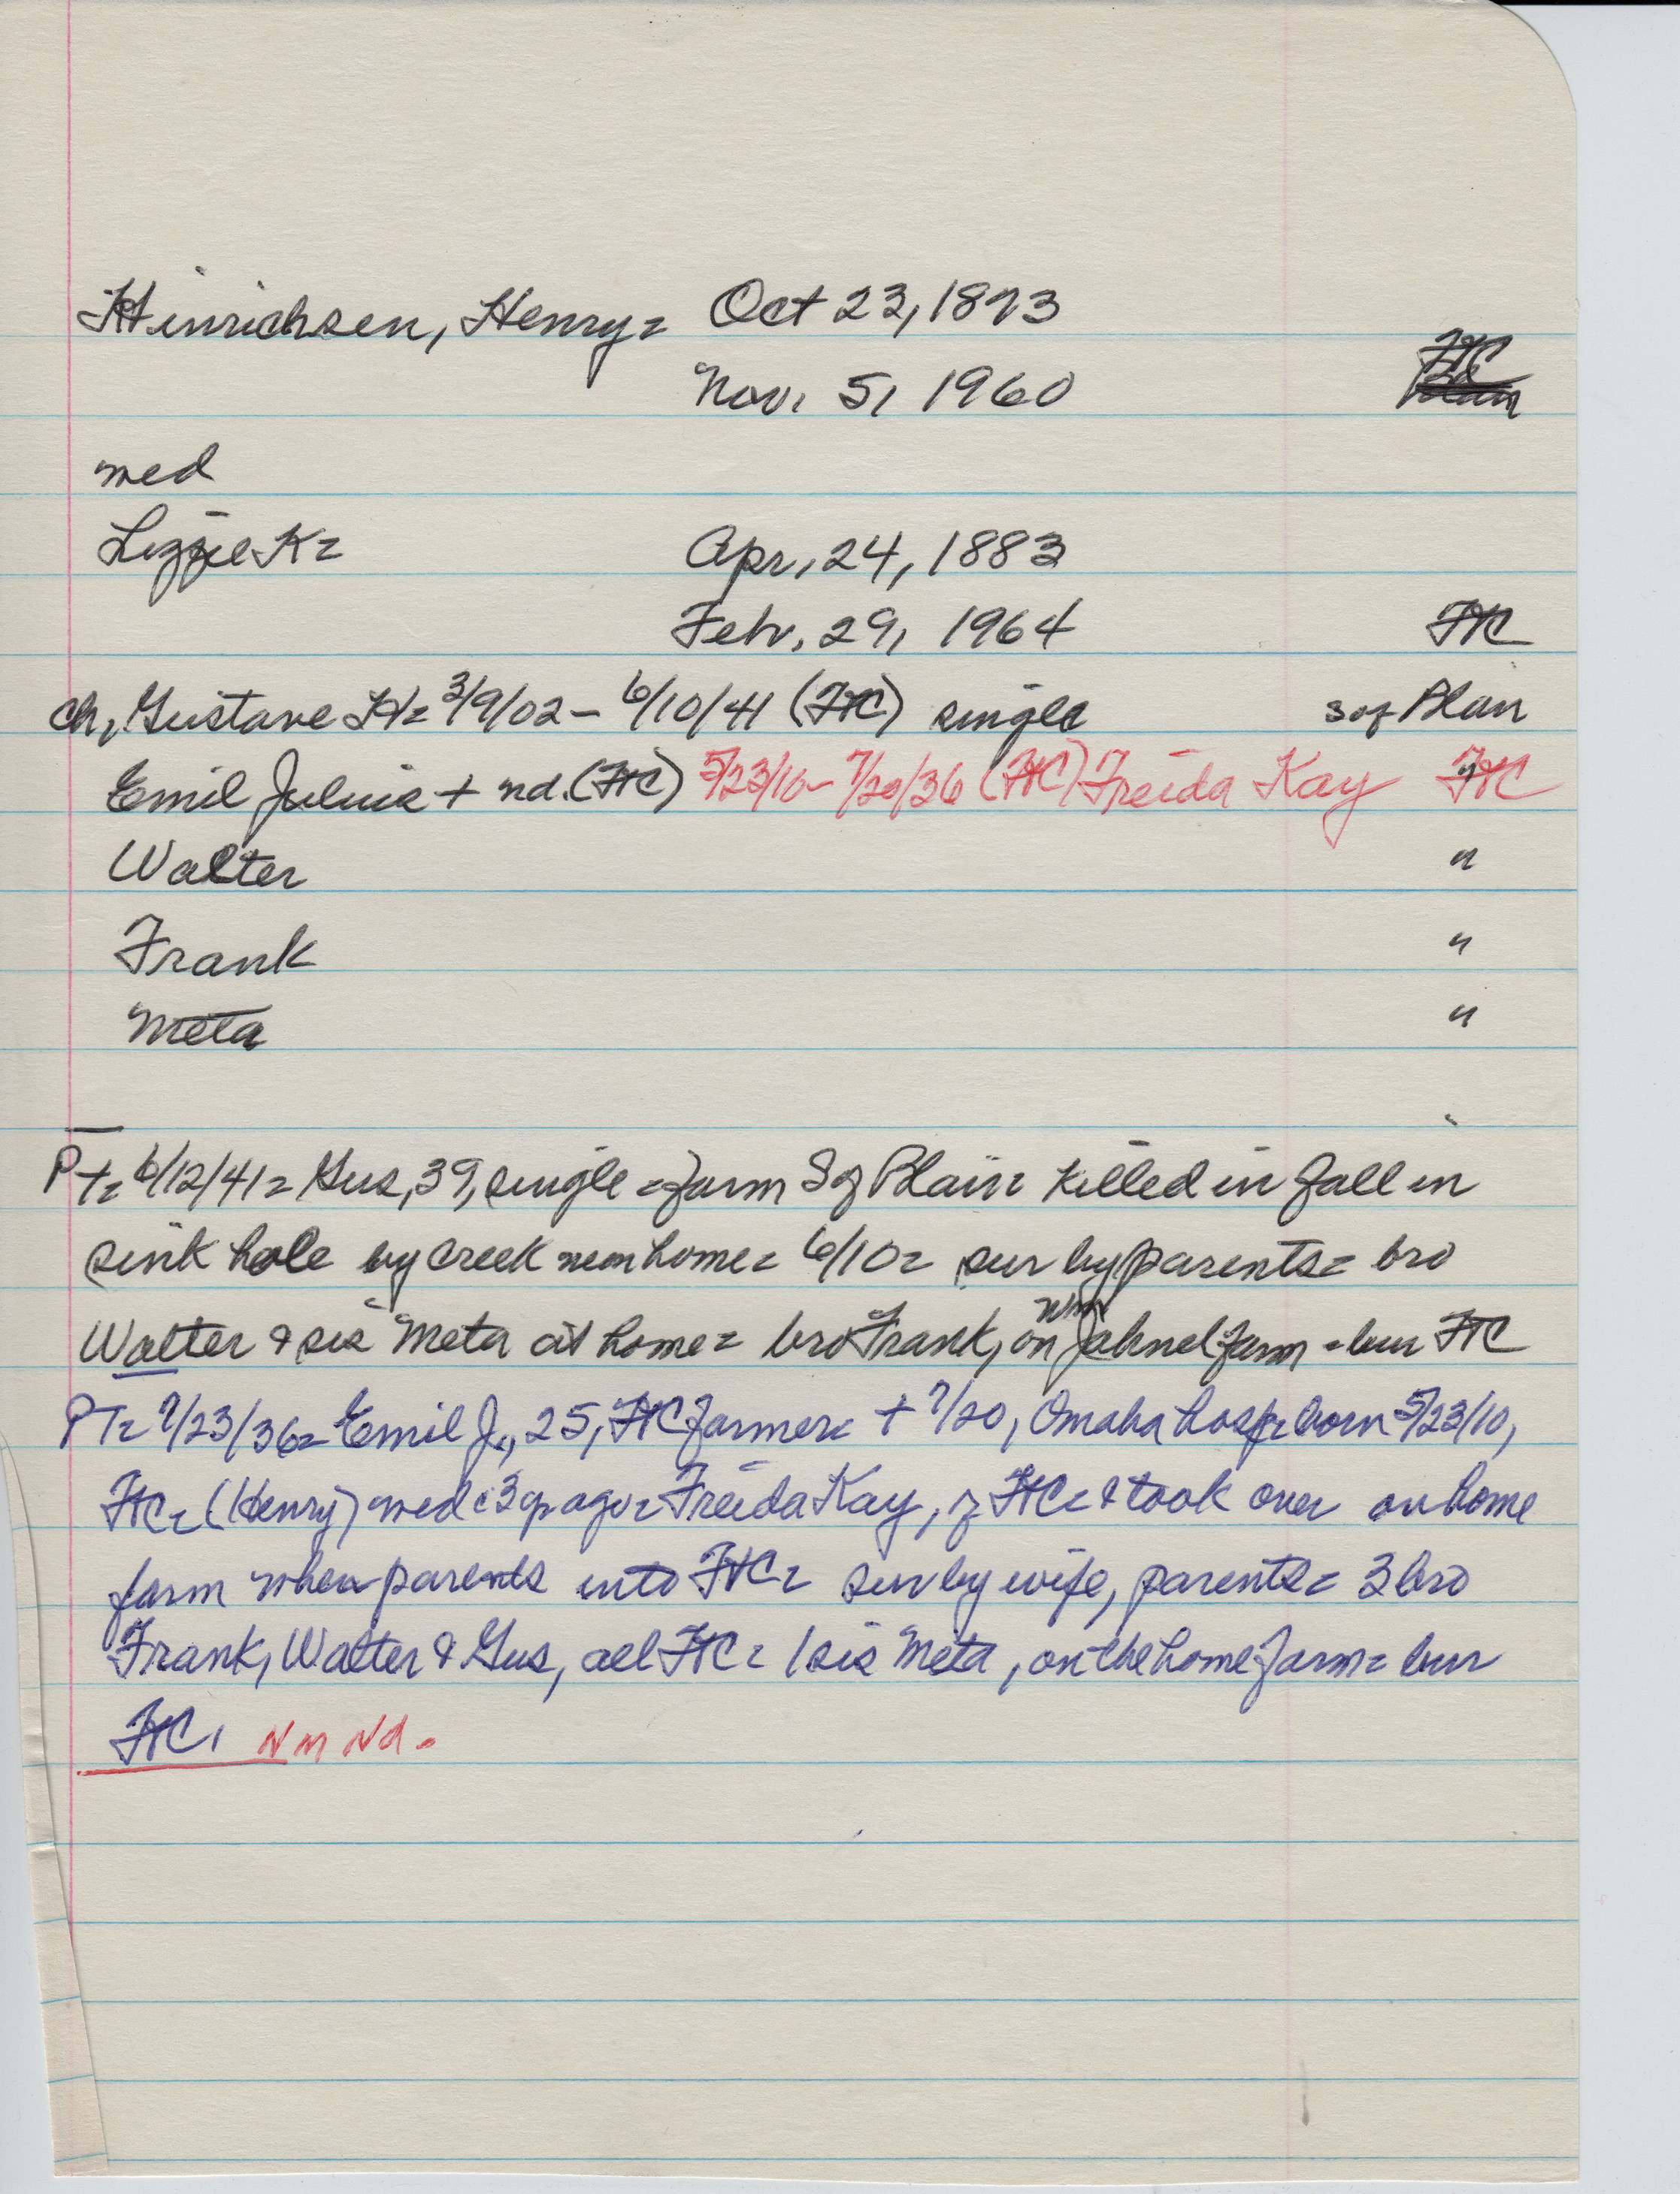 Hinrichsen, Henry = Oct 23, 1873
Nov. 5, 1960 FtC
med
Lizzie K = Apr. 24, 1883
Febr. 29, 1964 FtC
ch, Gustave H = 3/9/02 - 6/10/41 (FtC) single s of Blair
Emil Julius + nd. (FtC) 5/23/10 - 7/20/36 (FtC) Freida Kay FtC
Walter "
Frank "
Meta "
PT = 6/12/41 = Gus, 39, single = farm S of Blair = Killed in fall in
sink hole by creek near home = 6/10 = sur by parents = bro
Walter & sis Meta at home = bro Frank, on Wm Jahnel farm = bur FtC
PT = 7/23/36 = Emil J., 25, FtC farmer = + 7/20, Omaha hosp = born 5/23/10,
FtC = (Henry) med c 3 y ago = Freida Kay, of FtC = & took over on home
farm when parents into FtC = sur by wife, parents = 3 bro
Frank, Walter & Gus, all FtC = 1 sis Meta, on the home farm = bur
FtC. Nm Nd.